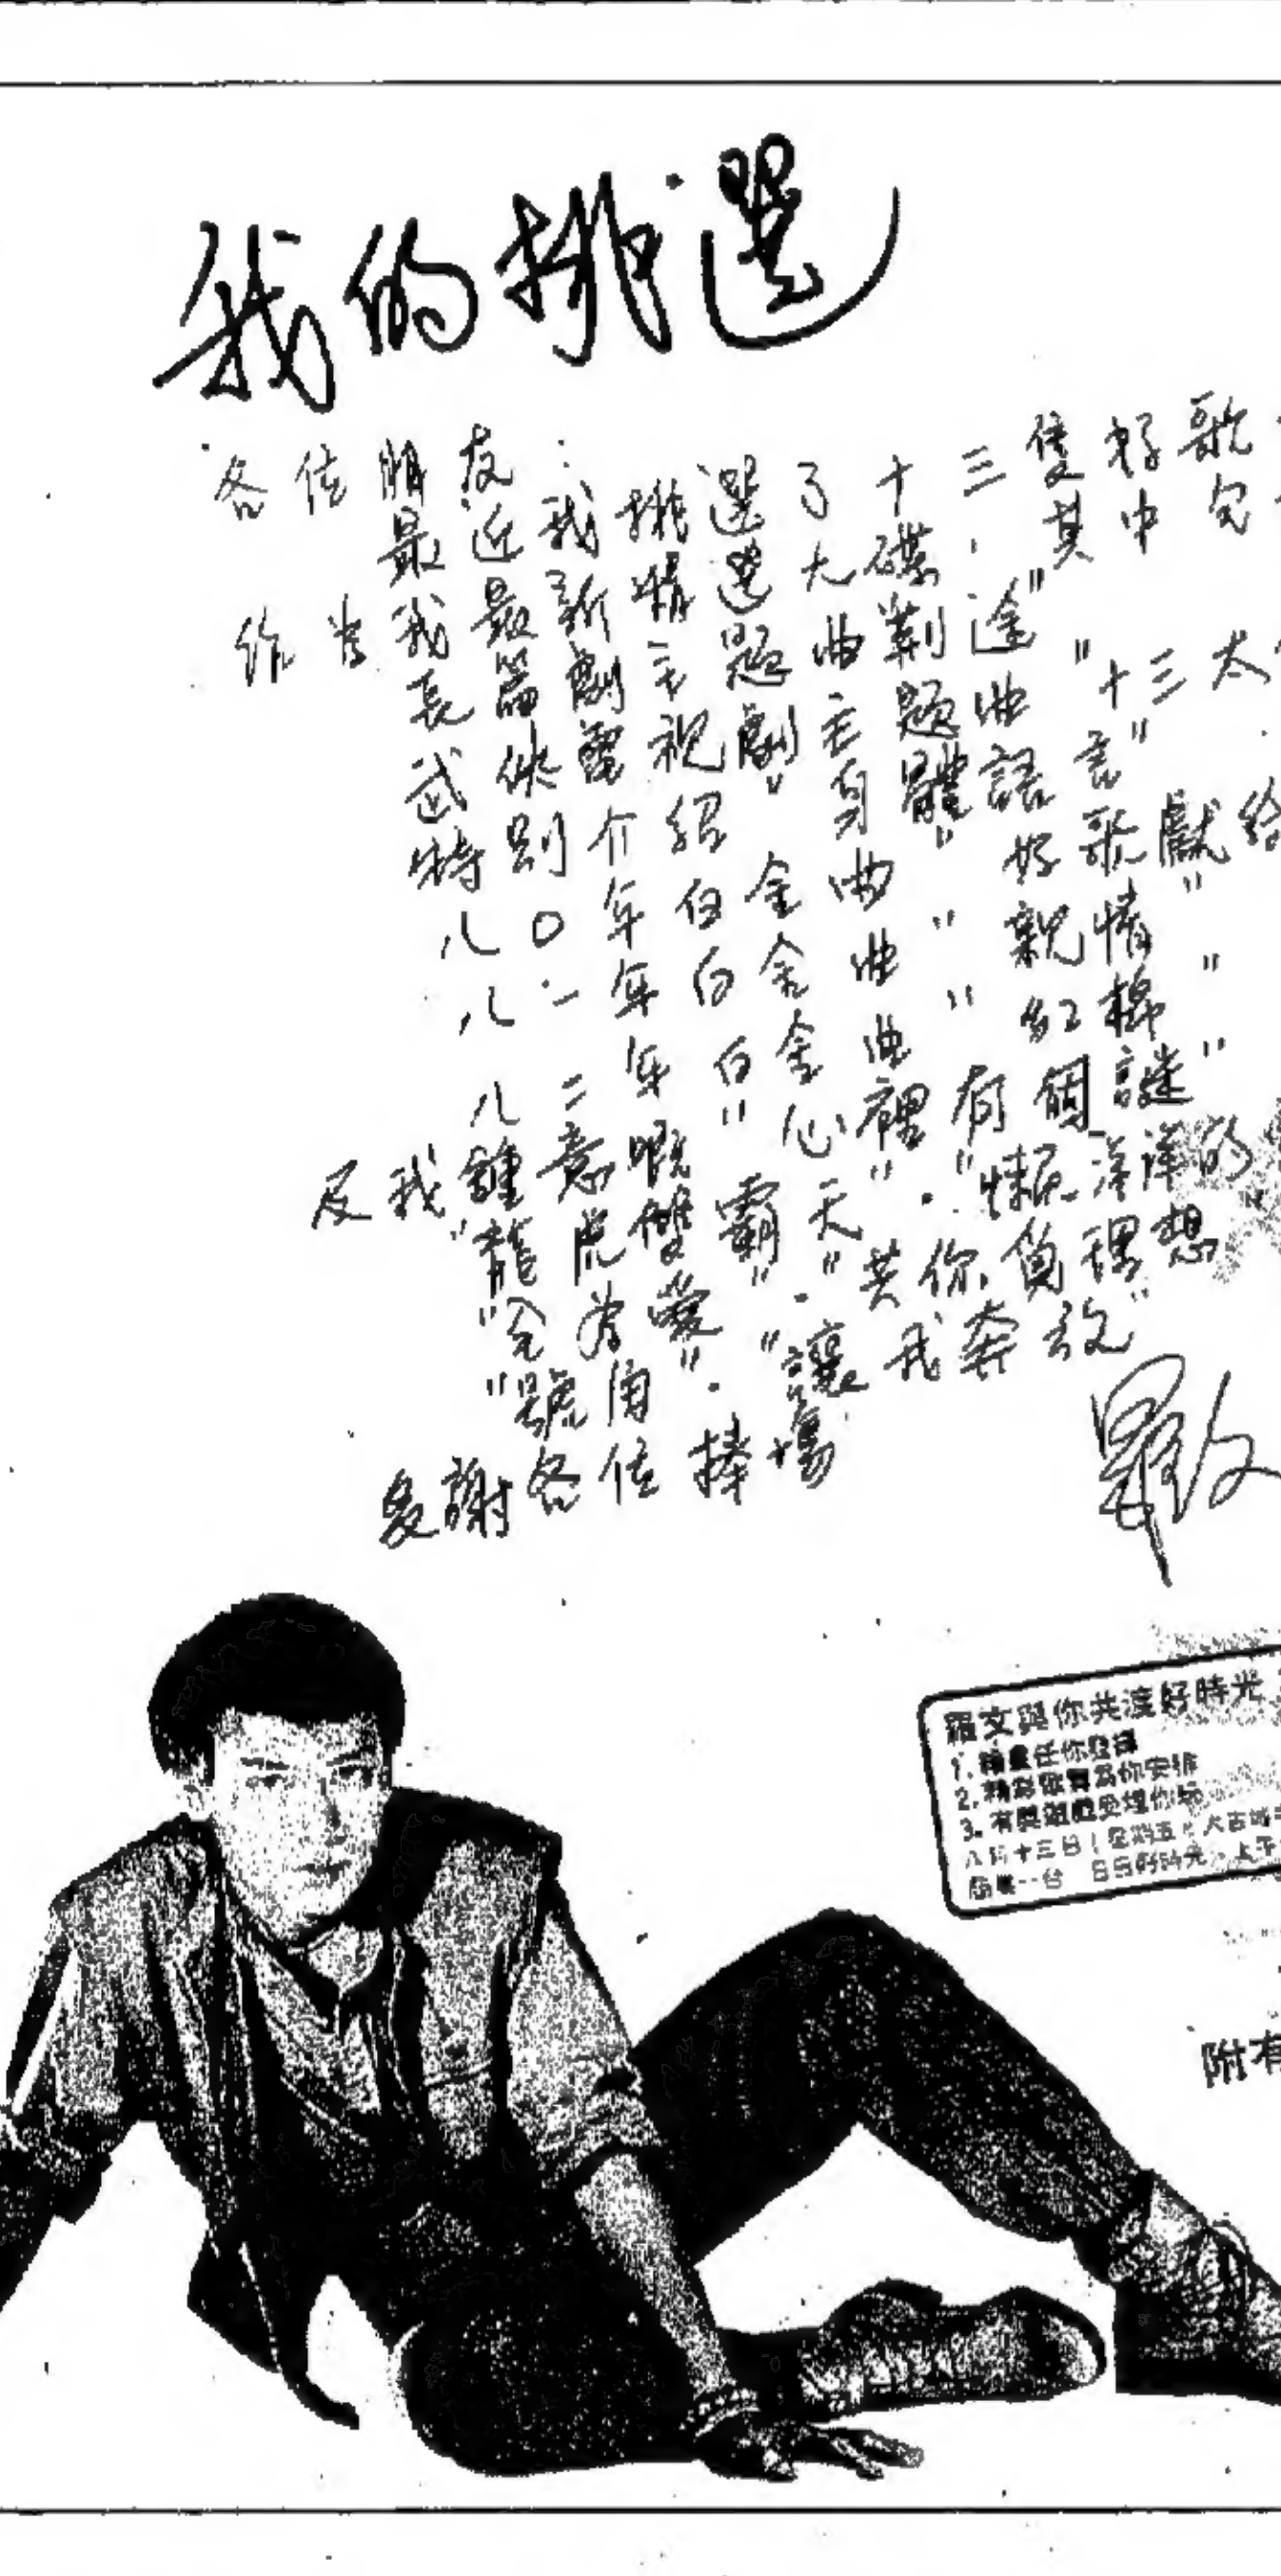 我的挑選
各位朋友：
最近我挑選了十三隻好歌
作為我最新精選大碟．其中包
長篇劇主題曲"荆途"
武俠電視劇主題曲"十三太
特別介紹"身體語言"．
八〇年白金曲"好歌獻給
八一年白金曲"親情"
八二年白金曲"紅棉"
及我鍾意嘅"心裡有個謎"
"龍虎雙霸天"．"懶洋洋的
"全為愛"．"共你負理想
"號角"．"讓我奔放"
多謝各位捧場
羅文
羅文與你共渡好時光
1. 任你
2. 精彩為你安排
3. 有獎遊戲
八月十三日(星期五)太古城
商業一台 日日好時光，上午
附有